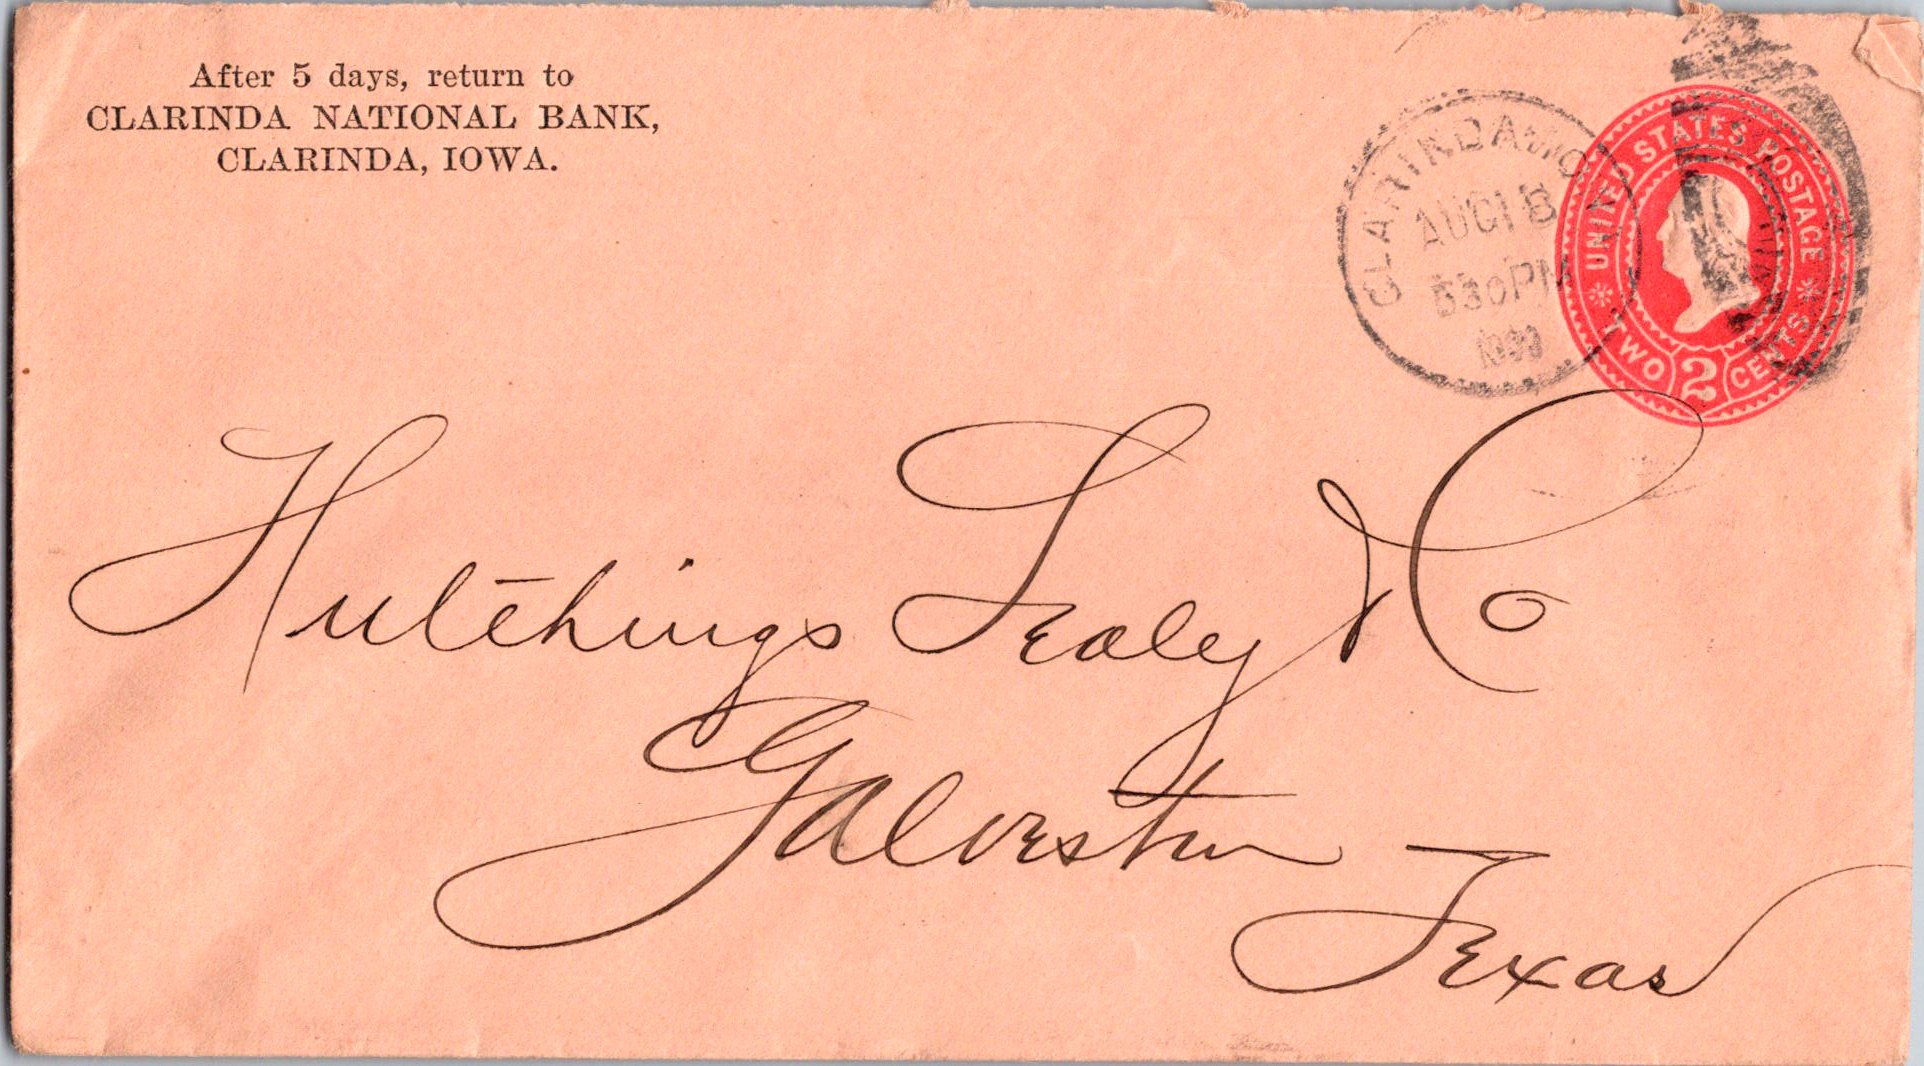 After 5 days, return to
CLARINDA NATIONAL BANK,
CLARINDA, IOWA.
CLARINDA
AUG 18
530 PM
UNITED STATES POSTAGE
TWO 2 CENTS
Hutchings Sealy & Co
Galveston
Texas